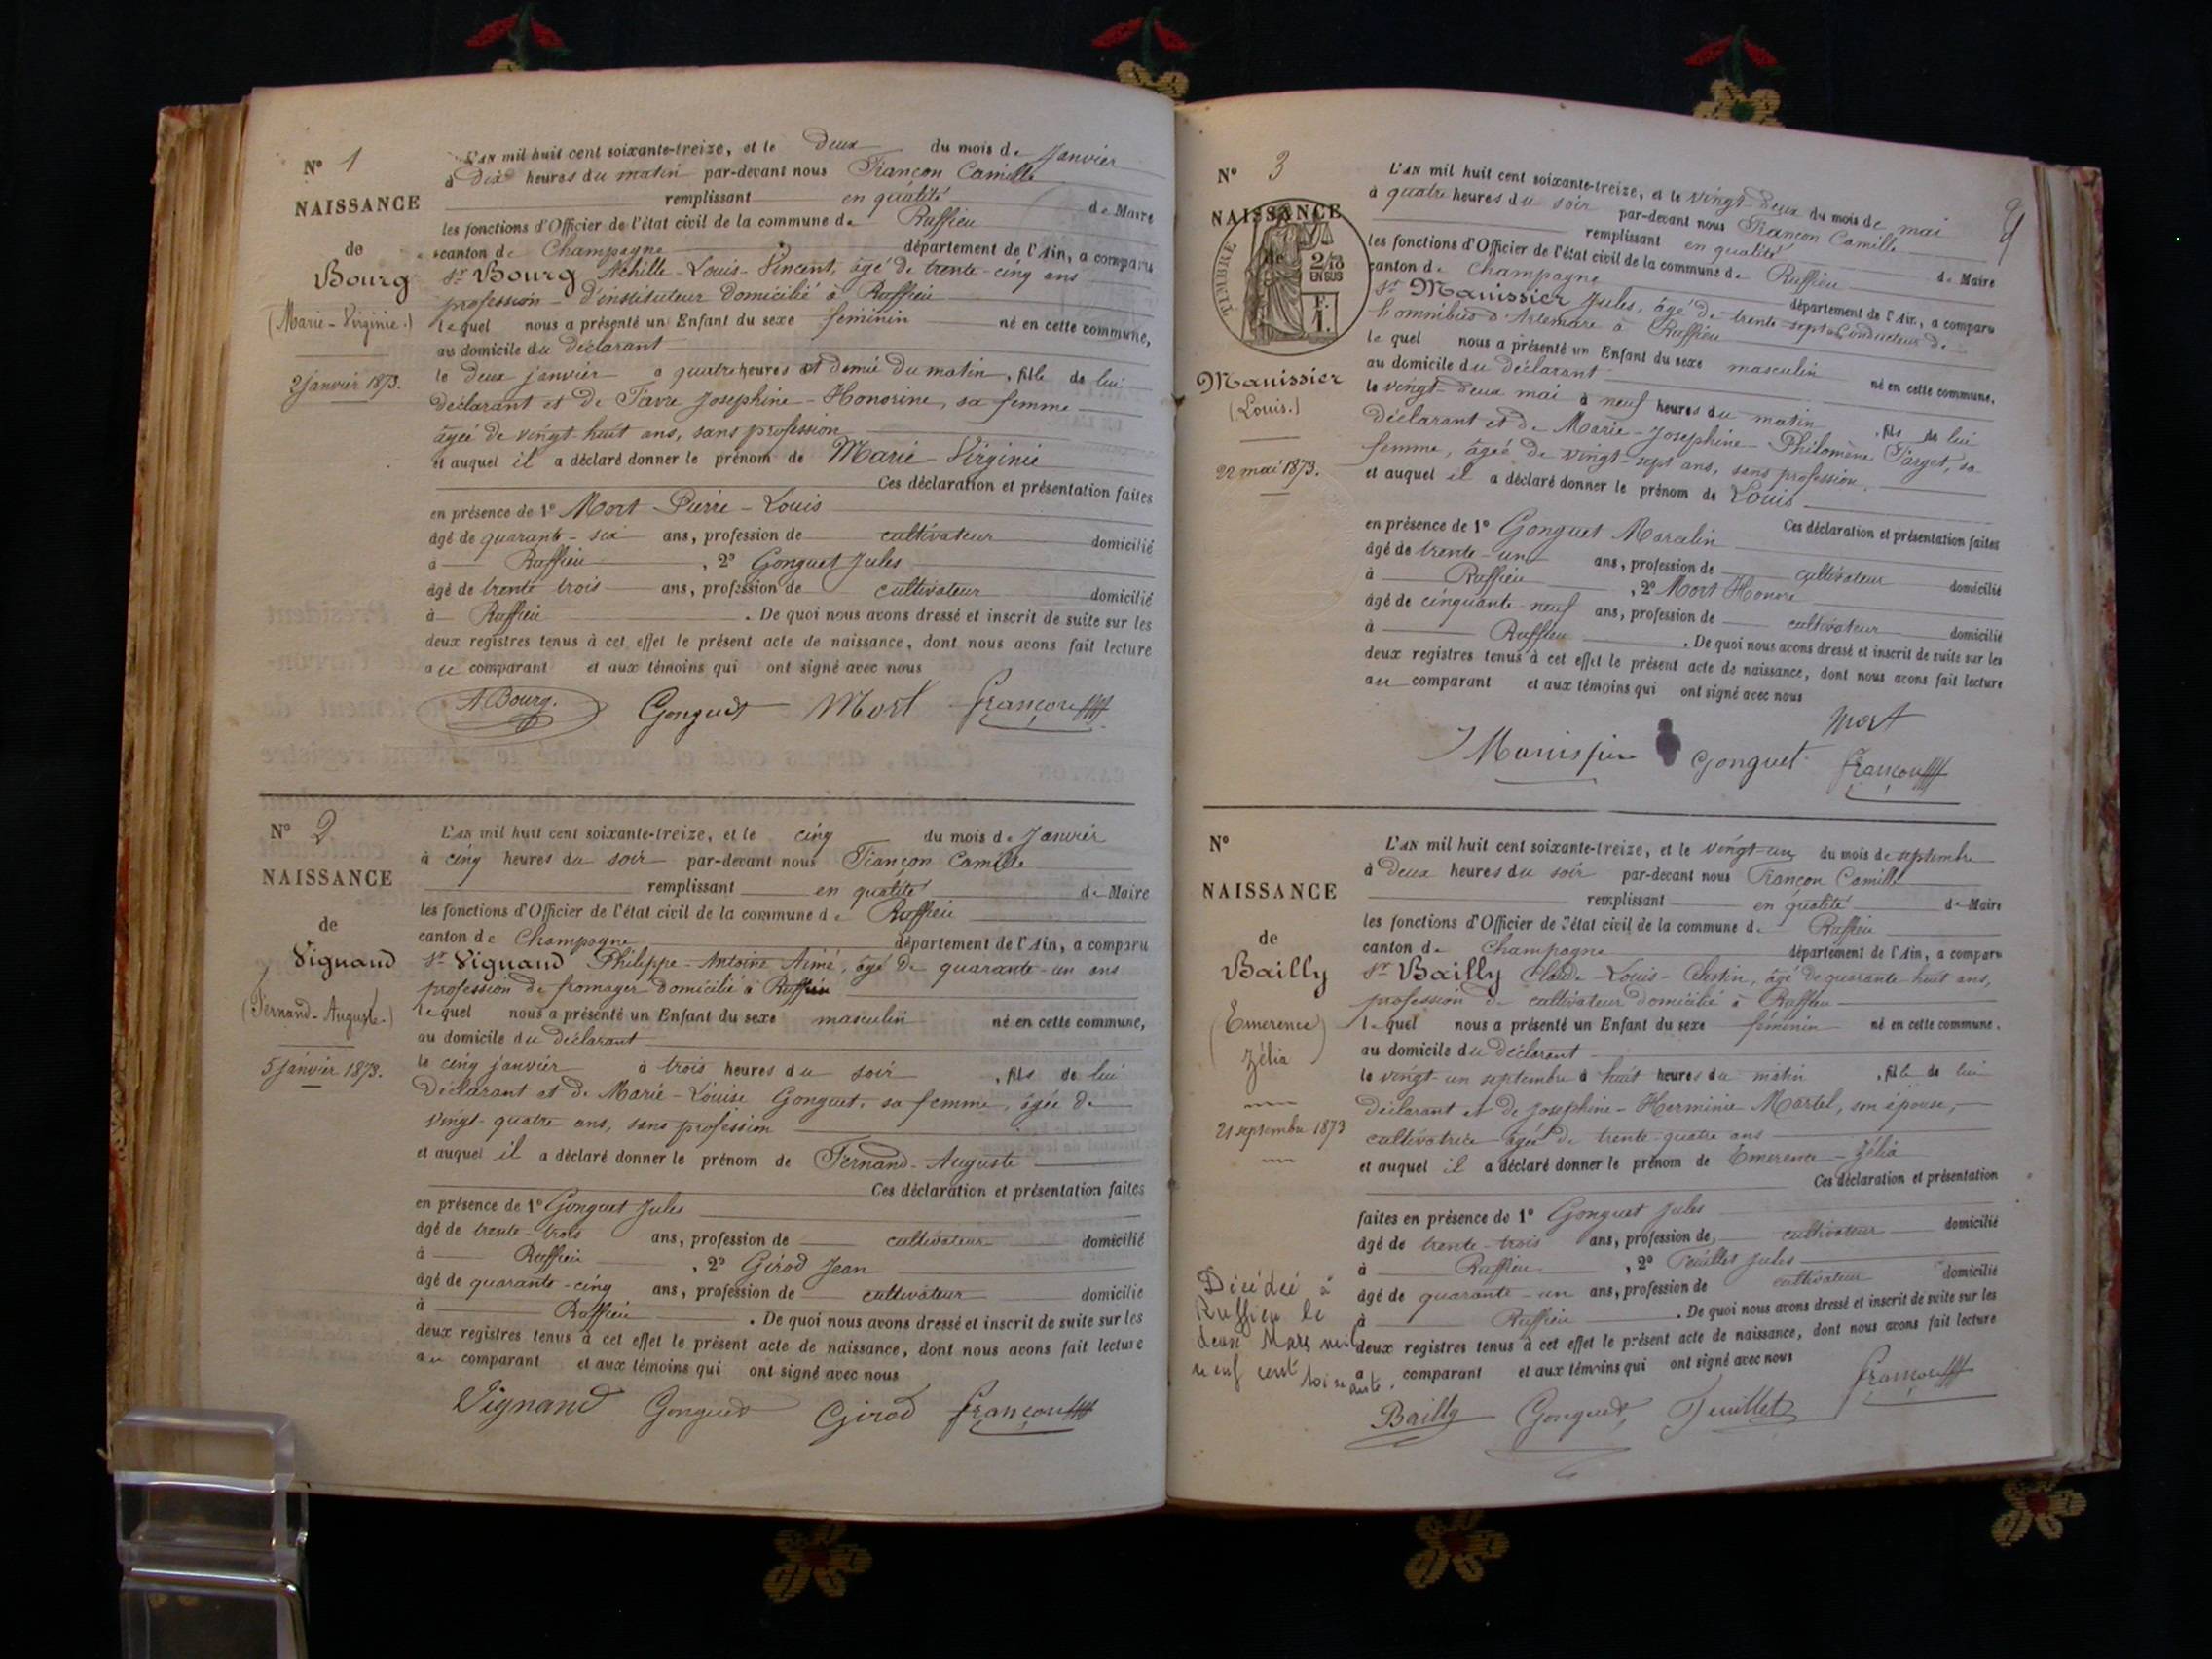 N° 1
NAISSANCE
de
Bourg
(Marie-Virginie.)
2 janvier 1873.
L'AN mil huit cent soixante-treize, et le deux du mois de Janvier
à dix heures du matin par-devant nous Françon Camille
remplissant en qualité de Maire
les fonctions d'Officier de l'état civil de la commune de Ruffieu
canton de Champagne département de l'Ain, a comparu
Sr Bourg Achille-Louis-Vincent, âgé de trente-cinq ans
profession d'instituteur domicilié à Ruffieu
lequel nous a présenté un Enfant du sexe féminin né en cette commune,
au domicile du déclarant
le deux janvier à quatre heures et demie du matin, fille de lui
déclarant et de Favre Josephine-Honorine, sa femme
âgée de vingt-huit ans, sans profession
et auquel il a déclaré donner le prénom de Marie-Virginie
Ces déclaration et présentation faites
en présence de 1° Mort Pierre-Louis
âgé de quarante-six ans, profession de cultivateur domicilié
à Ruffieu, 2° Gonguet Jules
âgé de trente trois ans, profession de cultivateur domicilié
à Ruffieu. De quoi nous avons dressé et inscrit de suite sur les
deux registres tenus à cet effet le présent acte de naissance, dont nous avons fait lecture
au comparant et aux témoins qui ont signé avec nous
A. Bourg. Gonguet Mort Françon
N° 2
NAISSANCE
de
Vignand
(Fernand-Auguste.)
5 janvier 1873.
L'AN mil huit cent soixante-treize, et le cinq du mois de Janvier
à cinq heures du soir par-devant nous Françon Camille
remplissant en qualité de Maire
les fonctions d'Officier de l'état civil de la commune de Ruffieu
canton de Champagne département de l'Ain, a comparu
Sr Vignand Philippe-Antoine Aimé, âgé de quarante-un ans
profession de fromager domicilié à Ruffieu
lequel nous a présenté un Enfant du sexe masculin né en cette commune,
au domicile du déclarant
le cinq janvier à trois heures du soir, fils de lui
déclarant et de Marie-Louise Gonguet, sa femme, âgée de
vingt-quatre ans, sans profession
et auquel il a déclaré donner le prénom de Fernand-Auguste
Ces déclaration et présentation faites
en présence de 1° Gonguet Jules
âgé de trente-trois ans, profession de cultivateur domicilié
à Ruffieu, 2° Girod Jean
âgé de quarante-cinq ans, profession de cultivateur domicilié
à Ruffieu. De quoi nous avons dressé et inscrit de suite sur les
deux registres tenus à cet effet le présent acte de naissance, dont nous avons fait lecture
au comparant et aux témoins qui ont signé avec nous
Vignand Gonguet Girod Françon
N° 3
NAISSANCE
de
TIMBRE
2/10
EN SUS
F.
1.
Manissier
(Louis.)
22 mai 1873.
L'AN mil huit cent soixante-treize, et le vingt-deux du mois de mai
à quatre heures du soir par-devant nous Françon Camille
remplissant en qualité de Maire
les fonctions d'Officier de l'état civil de la commune de Ruffieu
canton de Champagne département de l'Ain, a comparu
Sr Manissier Jules, âgé de trente-sept ans conducteur de
l'omnibus d'Artemare à Ruffieu
lequel nous a présenté un Enfant du sexe masculin né en cette commune,
au domicile du déclarant
le vingt-deux mai à neuf heures du matin, fils de lui
déclarant et de Marie-Josephine-Philomène Parget, sa
femme, âgée de vingt-sept ans, sans profession
et auquel il a déclaré donner le prénom de Louis
Ces déclaration et présentation faites
en présence de 1° Gonguet Marcelin
âgé de trente-un ans, profession de cultivateur domicilié
à Ruffieu, 2° Mort Honoré
âgé de cinquante neuf ans, profession de cultivateur domicilié
à Ruffieu. De quoi nous avons dressé et inscrit de suite sur les
deux registres tenus à cet effet le présent acte de naissance, dont nous avons fait lecture
au comparant et aux témoins qui ont signé avec nous
Mort
Manissier Gonguet Françon
N°
NAISSANCE
de
Bailly
(Emerence
Zélia)
21 septembre 1873
L'AN mil huit cent soixante-treize, et le vingt-un du mois de septembre
à deux heures du soir par-devant nous Françon Camille
remplissant en qualité de Maire
les fonctions d'Officier de l'état civil de la commune de Ruffieu
canton de Champagne département de l'Ain, a comparu
Sr Bailly Claude-Louis-Chistin, âgé de quarante huit ans,
profession de cultivateur domicilié à Ruffieu
lequel nous a présenté un Enfant du sexe féminin né en cette commune.
au domicile du déclarant
le vingt-un septembre à huit heures du matin, fille de lui
déclarant et de Josephine-Herminie Martel, son épouse,
cultivatrice âgée de trente-quatre ans
et auquel il a déclaré donner le prénom de Emerence-Zélia
Ces déclaration et présentation
faites en présence de 1° Gonguet Jules
âgé de trente-trois ans, profession de cultivateur domicilié
à Ruffieu, 2° Feuillet Jules
âgé de quarante-un ans, profession de cultivateur domicilié
à Ruffieu. De quoi nous avons dressé et inscrit de suite sur les
deux registres tenus à cet effet le présent acte de naissance, dont nous avons fait lecture
a comparant et aux témoins qui ont signé avec nous
Bailly Gonguet Feuillet Françon
Décédée à
Ruffieu le
deux Mars mil
neuf cent soixante.